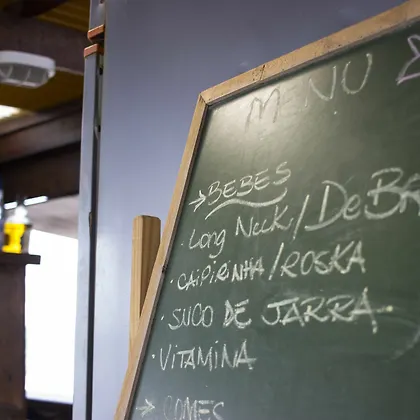 MENU
→BEBES
· Long Neck/DeBA
· CAIPIRINHA/ROSKA
· SUCO DE JARRA
· VITAMINA
→COMES